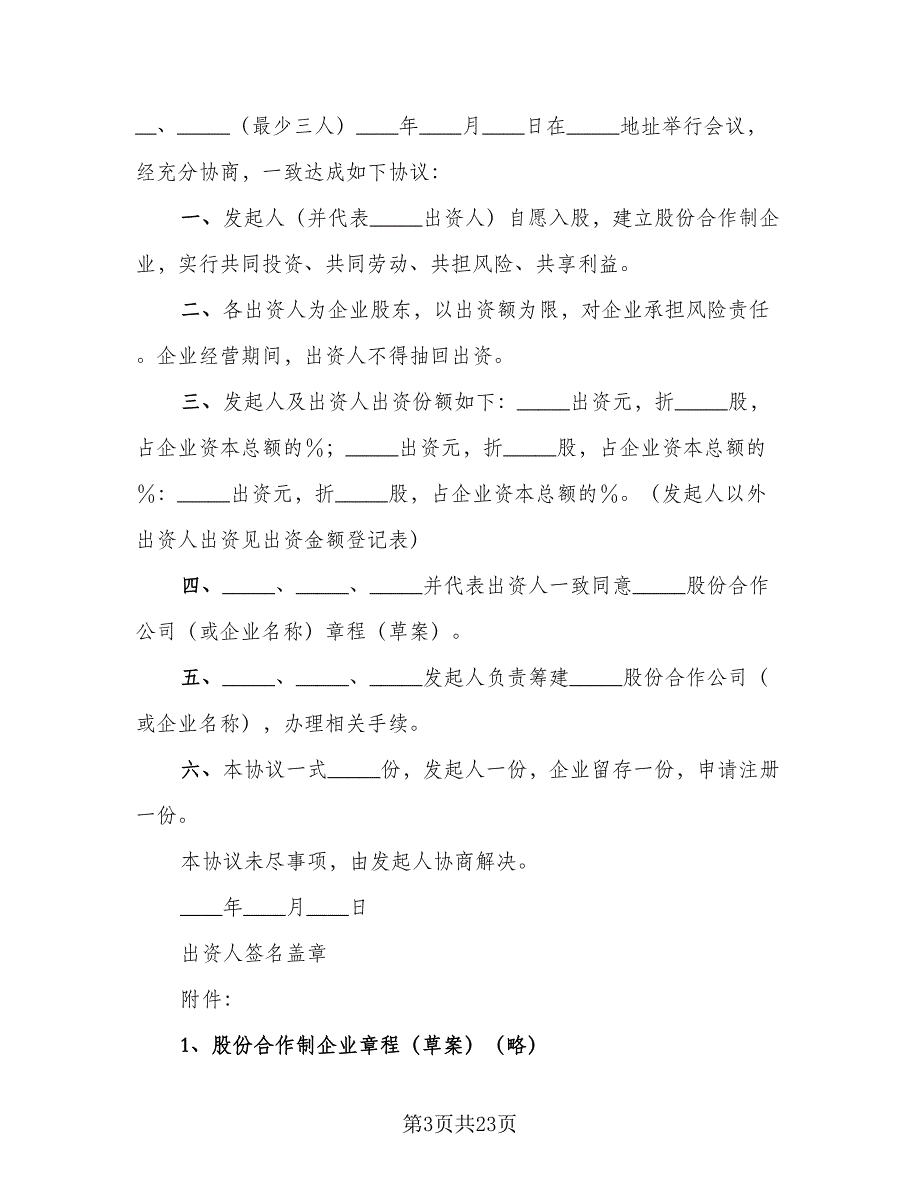 __、_____（最少三人）____年____月____日在_____地址举行会议，
经充分协商，一致达成如下协议：
一、发起人（并代表_____出资人）自愿入股，建立股份合作制企
业，实行共同投资、共同劳动、共担风险、共享利益。
二、各出资人为企业股东，以出资额为限，对企业承担风险责任
。企业经营期间，出资人不得抽回出资。
三、发起人及出资人出资份额如下：_____出资元，折_____股，
占企业资本总额的％；_____出资元，折_____股，占企业资本总额的
％：_____出资元，折_____股，占企业资本总额的％。（发起人以外
出资人出资见出资金额登记表）
四、_____、_____、_____并代表出资人一致同意_____股份合作
公司（或企业名称）章程（草案）。
五、_____、_____、_____发起人负责筹建_____股份合作公司（
或企业名称），办理相关手续。
六、本协议一式_____份，发起人一份，企业留存一份，申请注册
一份。
本协议未尽事项，由发起人协商解决。
____年____月____日
出资人签名盖章
附件：
1、股份合作制企业章程（草案）（略）
第3页共23页